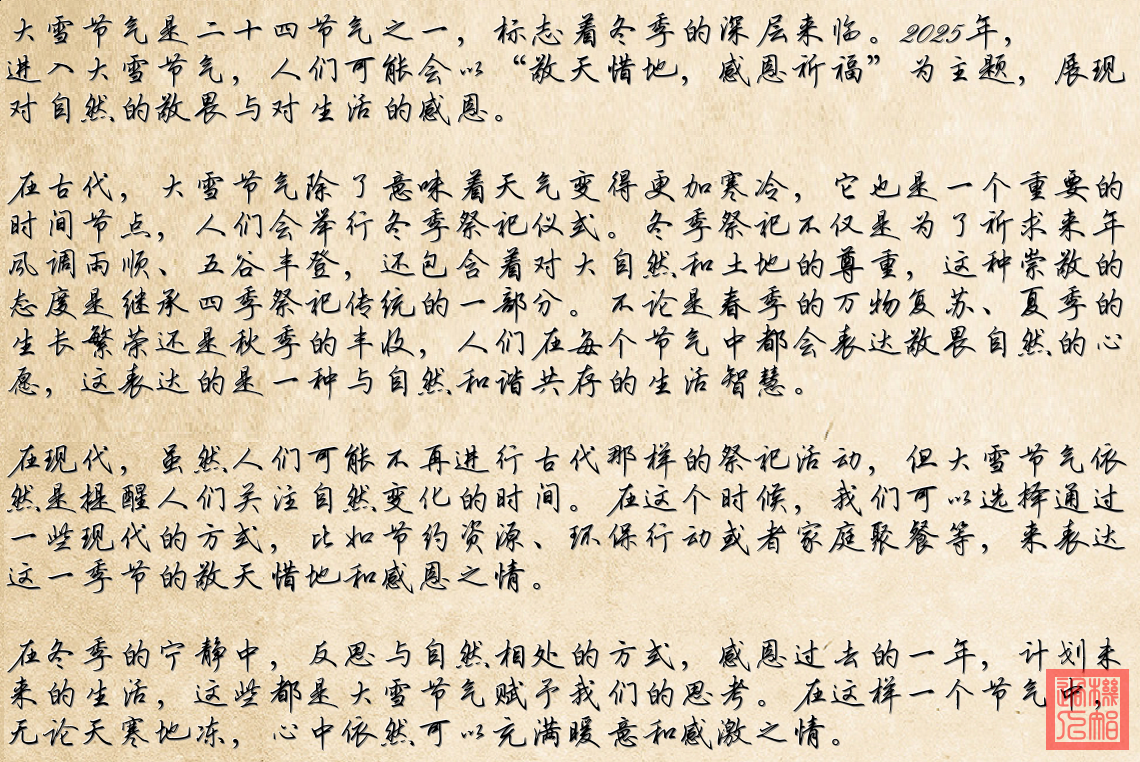 大雪节气是二十四节气之一，标志着冬季的深层来临。2025年，
进入大雪节气，人们可能会以“敬天惜地，感恩祈福”为主题，展现
对自然的敬畏与对生活的感恩。
在古代，大雪节气除了意味着天气变得更加寒冷，它也是一个重要的
时间节点，人们会举行冬季祭祀仪式。冬季祭祀不仅是为了祈求来年
风调雨顺、五谷丰登，还包含着对大自然和土地的尊重，这种崇敬的
态度是继承四季祭祀传统的一部分。不论是春季的万物复苏、夏季的
生长繁荣还是秋季的丰收，人们在每个节气中都会表达敬畏自然的心
愿，这表达的是一种与自然和谐共存的生活智慧。
在现代，虽然人们可能不再进行古代那样的祭祀活动，但大雪节气依
然是提醒人们关注自然变化的时间。在这个时候，我们可以选择通过
一些现代的方式，比如节约资源、环保行动或者家庭聚餐等，来表达
这一季节的敬天惜地和感恩之情。
在冬季的宁静中，反思与自然相处的方式，感恩过去的一年，计划未
来的生活，这些都是大雪节气赋予我们的思考。在这样一个节气中，
无论天寒地冻，心中依然可以充满暖意和感激之情。